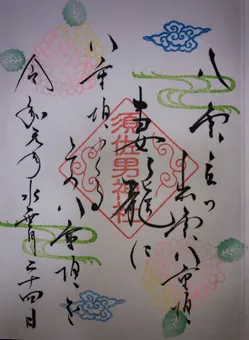 八雲立つ
出雲八重垣
妻籠に
八重垣
八重垣を
令和元年水無月二十四日
須佐男神社